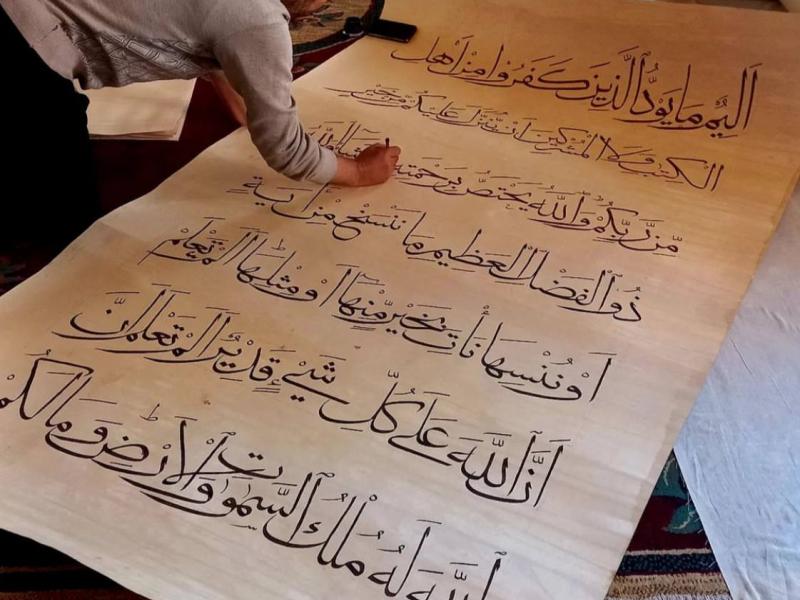 اَلِيمٌ مَا يَوَدُّ الَّذِينَ كَفَرُوا مِنْ اَهْلِ
الْكِتٰبِ وَلَا الْمُشْرِكِينَ اَنْ يُنَزَّلَ عَلَيْكُمْ مِنْ خَيْرٍ
مِّنْ رَّبِّكُمْ وَاللّٰهُ يَخْتَصُّ بِرَحْمَتِهِ يَشَاءُ وَاللّٰهُ
ذُو الْفَضْلِ الْعَظِيمِ مَا نَنْسَخْ مِنْ اٰيَةٍ
اَوْ نُنْسِهَا نَأْتِ بِخَيْرٍ مِّنْهَا اَوْ مِثْلِهَا اَلَمْ تَعْلَمْ
اَنَّ اللّٰهَ عَلٰى كُلِّ شَيْءٍ قَدِيرٌ اَلَمْ تَعْلَمْ اَنَّ
اللّٰهَ لَهُ مُلْكُ السَّمٰوٰتِ وَالْاَرْضِ وَمَا لَكُمْ